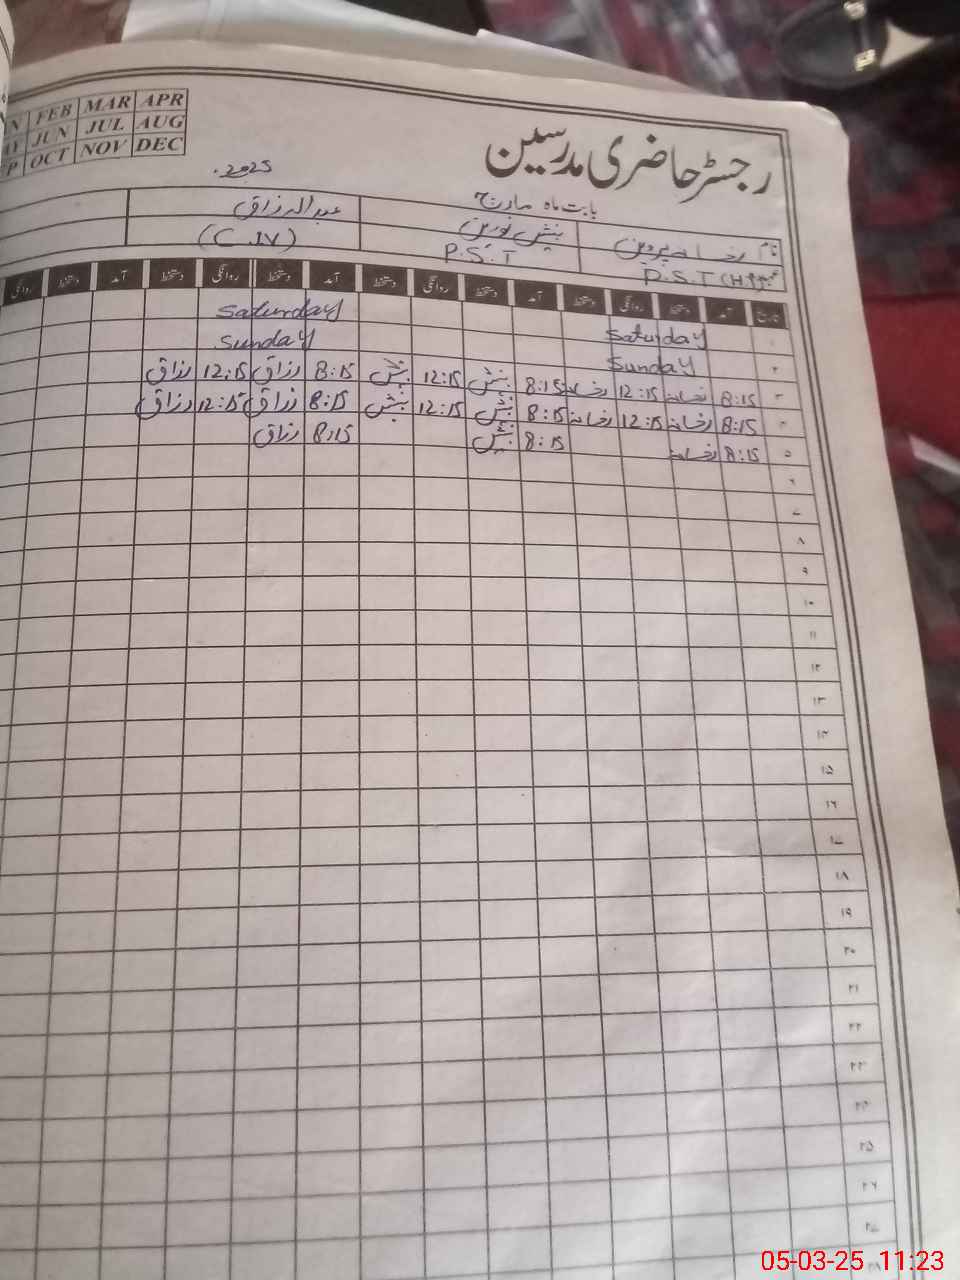 FEB MAR APR
JUN JUL AUG
OCT NOV DEC
رجسٹر حاضری مدرسین
2025
بابت ماہ مارچ
نام رخسانہ پروین
عبدالرزاق
P.S.T (H
P.S.T
(C.IV)
تاریخ آمد دستخط روانگی دستخط آمد دستخط روانگی دستخط آمد دستخط روانگی دستخط آمد دستخط روانگی
۱ Saturday Saturday
۲ Sunday Sunday
۳ 8:15 رخسانہ 12:15 رخسانہ 8:15 بینش 12:15 بینش 8:15 رزاق 12:15 رزاق
۴ 8:15 رخسانہ 12:15 رخسانہ 8:15 بینش 12:15 بینش 8:15 رزاق 12:15 رزاق
۵ 8:15 رخسانہ 8:15 بینش 8:15 رزاق
۶
۷
۸
۹
۱۰
۱۱
۱۲
۱۳
۱۴
۱۵
۱۶
۱۷
۱۸
۱۹
۲۰
۲۱
۲۲
۲۳
۲۴
۲۵
۲۶
۲۷
۲۸
05-03-25 11:23